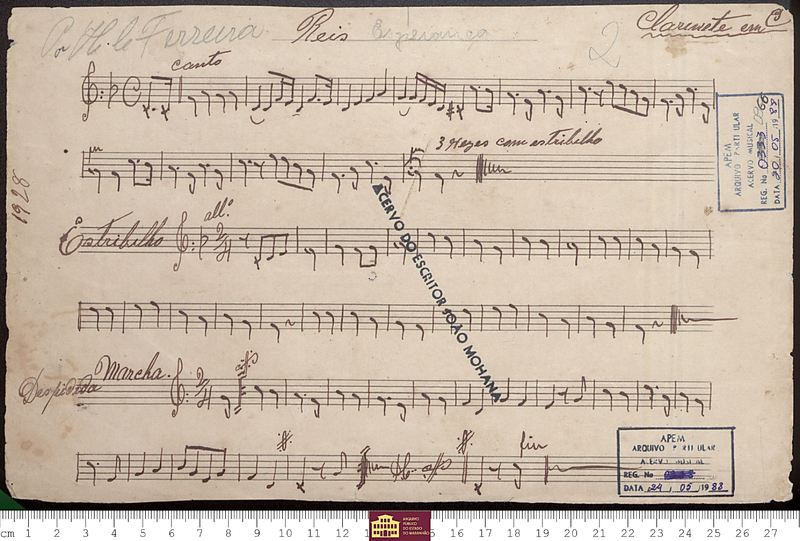 Por H. le Ferreira Reis Esperança 2 Clarinete em
canto
APEM
ARQUIVO PARTI ULAR
ACERVO MUSICAL
REG. No
DATA 20/05/1988
3 vezes com estribilho
1928
ACERVO DO ESCRITOR JOÃO MOHANA
Estribilho all.º
Despidida Marcha.
fin
APEM
ARQUIVO P RTI ULAR
REG. No
DATA 24 / 05 / 1988
cm 1 2 3 4 5 6 7 8 9 10 11 12 13 15 16 17 18 19 20 21 22 23 24 25 26 27
ARQUIVO
PÚBLICO
DO ESTADO
DO MARANHÃO